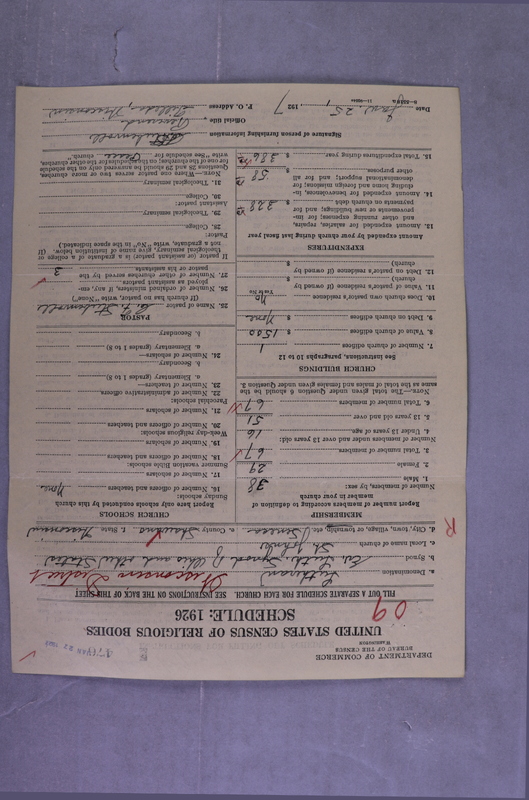 DEPARTMENT OF COMMERCE
BUREAU OF THE CENSUS
WASHINGTON
UNITED STATES CENSUS OF RELIGIOUS BODIES
SCHEDULE: 1926
09
FILL OUT A SEPARATE SCHEDULE FOR EACH CHURCH. SEE INSTRUCTIONS ON THE BACK OF THIS SHEET
a. Denomination Lutheran Wisconsin District
b. Synod Ev. Luth. Synod of Ohio and other States
c. Local name of church St. John's
d. City, town, village, or township, etc. Seneca e. County Shawano f. State Wisconsin
R
MEMBERSHIP
Report number of members according to definition of member in your church
Number of members, by sex:
1. Male 38
2. Female 29
3. Total number of members 67
Number of members under and over 13 years old:
4. Under 13 years of age 16
5. 13 years old and over 51
6. Total number of members 67
Note.—The total given under Question 6 should be the same as the total of males and females given under Question 3.
CHURCH BUILDINGS
See instructions, paragraphs 10 to 12
7. Number of church edifices 1
8. Value of church edifices $ 1500
9. Debt on church edifices $ None
10. Does church own pastor's residence No
Yes or No
11. Value of pastor's residence (if owned by church) $
12. Debt on pastor's residence (if owned by church) $
EXPENDITURES
Amount expended by your church during last fiscal year
13. Amount expended for salaries, repairs, and other running expenses; for improvements or new buildings; and for payments on church debt $ 328
14. Amount expended for benevolences, including home and foreign missions; for denominational support; and for all other purposes $ 58
15. Total expenditures during year $ 386
CHURCH SCHOOLS
Report here only schools conducted by this church
Sunday schools:
16. Number of officers and teachers None
17. Number of scholars
Summer vacation Bible schools:
18. Number of officers and teachers
19. Number of scholars
Week-day religious schools:
20. Number of officers and teachers
21. Number of scholars
Parochial schools:
22. Number of administrative officers
23. Number of teachers—
a. Elementary (grades 1 to 8)
b. Secondary
24. Number of scholars—
a. Elementary (grades 1 to 8)
b. Secondary
PASTOR
25. Name of pastor
(If church has no pastor, write "None")
26. Number of ordained ministers, if any, employed as assistant pastors
27. Number of other churches served by the pastor or his assistants 3
If pastor (or assistant pastor) is a graduate of a college or theological seminary, give name of institution below. (If not a graduate, write "No" in the space indicated)
Pastor:
28. College
29. Theological seminary
Assistant pastor:
30. College
31. Theological seminary
Note.—Where one pastor serves two or more churches, Questions 28 and 29 need be answered only on the schedule for one of the churches; on the schedules for the other churches, write "See schedule for Grace church."
Signature of person furnishing information
Official title Reverend
Date Jan. 25, 1927 P. O. Address Tilleda, Wisconsin